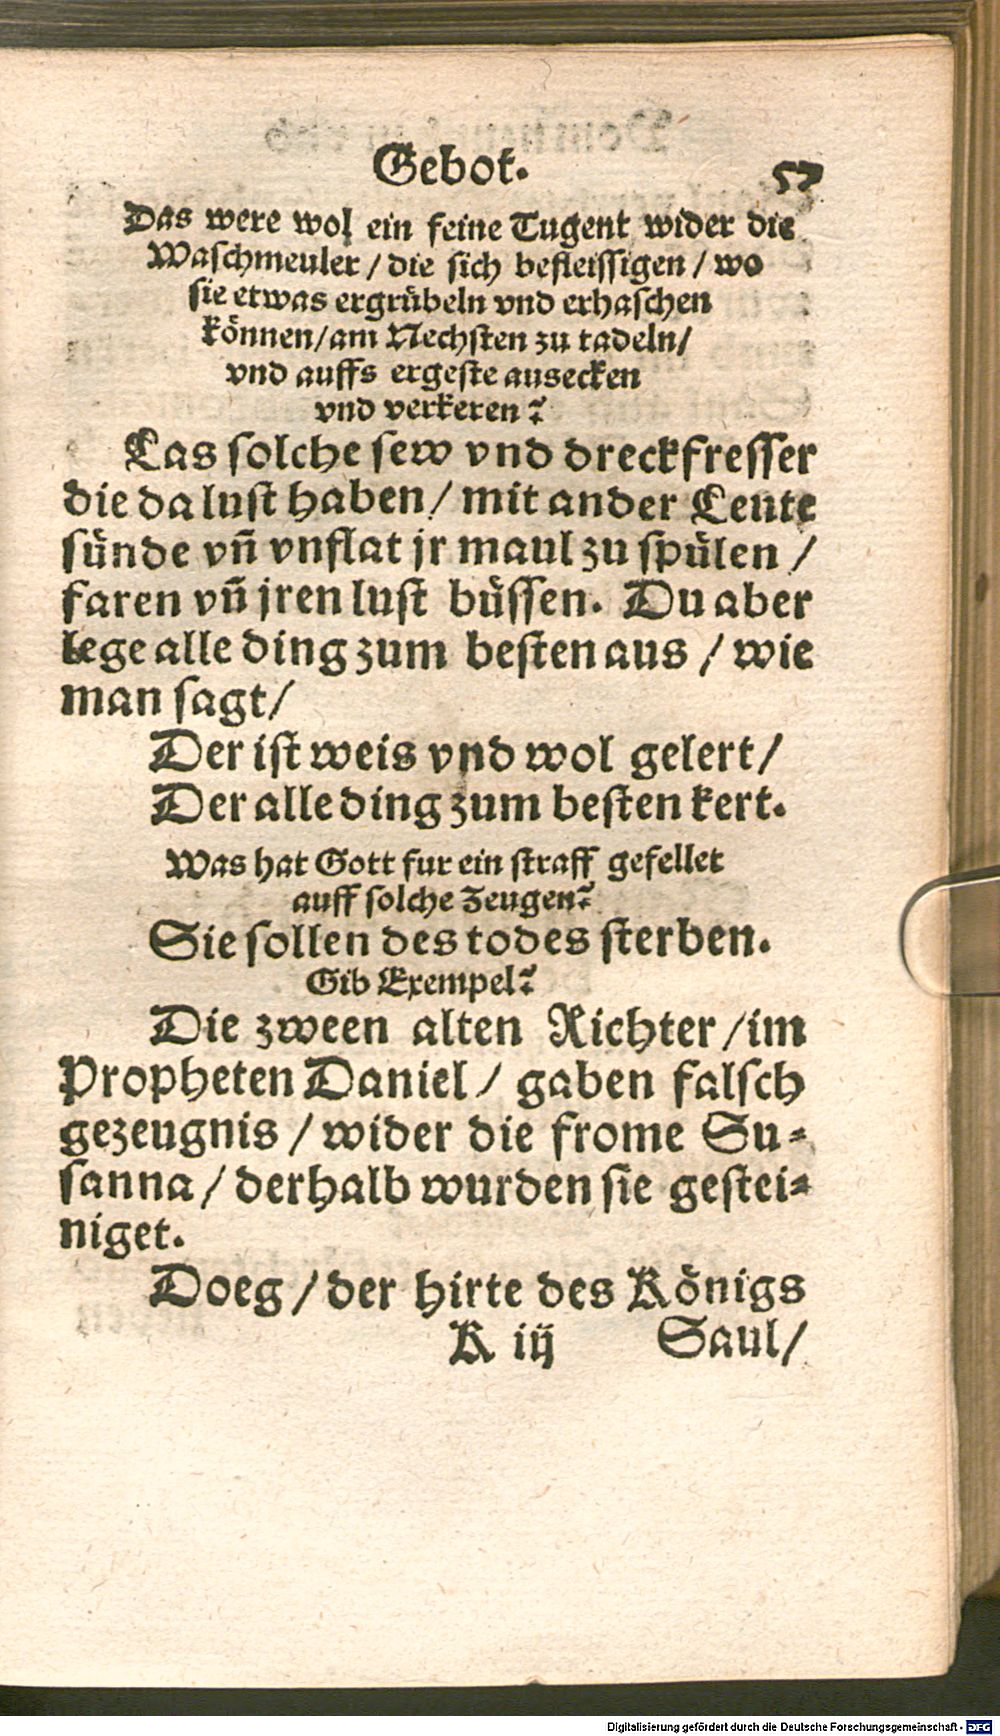 Gebot. 57
Das were wol ein feine Tugent wider die
Waschmeuler / die sich befleissigen / wo
sie etwas ergrübeln vnd erhaschen
können/am Nechsten zu tadeln/
vnd auffs ergeste ausecken
vnd verkeren?
Las solche sew vnd dreckfresser
die da lust haben/ mit ander Leute
sünde vñ vnflat jr maul zu spülen /
faren vñ jren lust büssen. Du aber
lege alle ding zum besten aus / wie
man sagt/
Der ist weis vnd wol gelert/
Der alle ding zum besten kert.
Was hat Gott fur ein straff gefellet
auff solche Zeugen?
Sie sollen des todes sterben.
Gib Exempel?
Die zween alten Richter /im
Propheten Daniel / gaben falsch
gezeugnis / wider die frome Su-
sanna / derhalb wurden sie gestei-
niget.
Doeg / der hirte des Königs
K iij Saul/
Digitalisierung gefördert durch die Deutsche Forschungsgemeinschaft - DFG